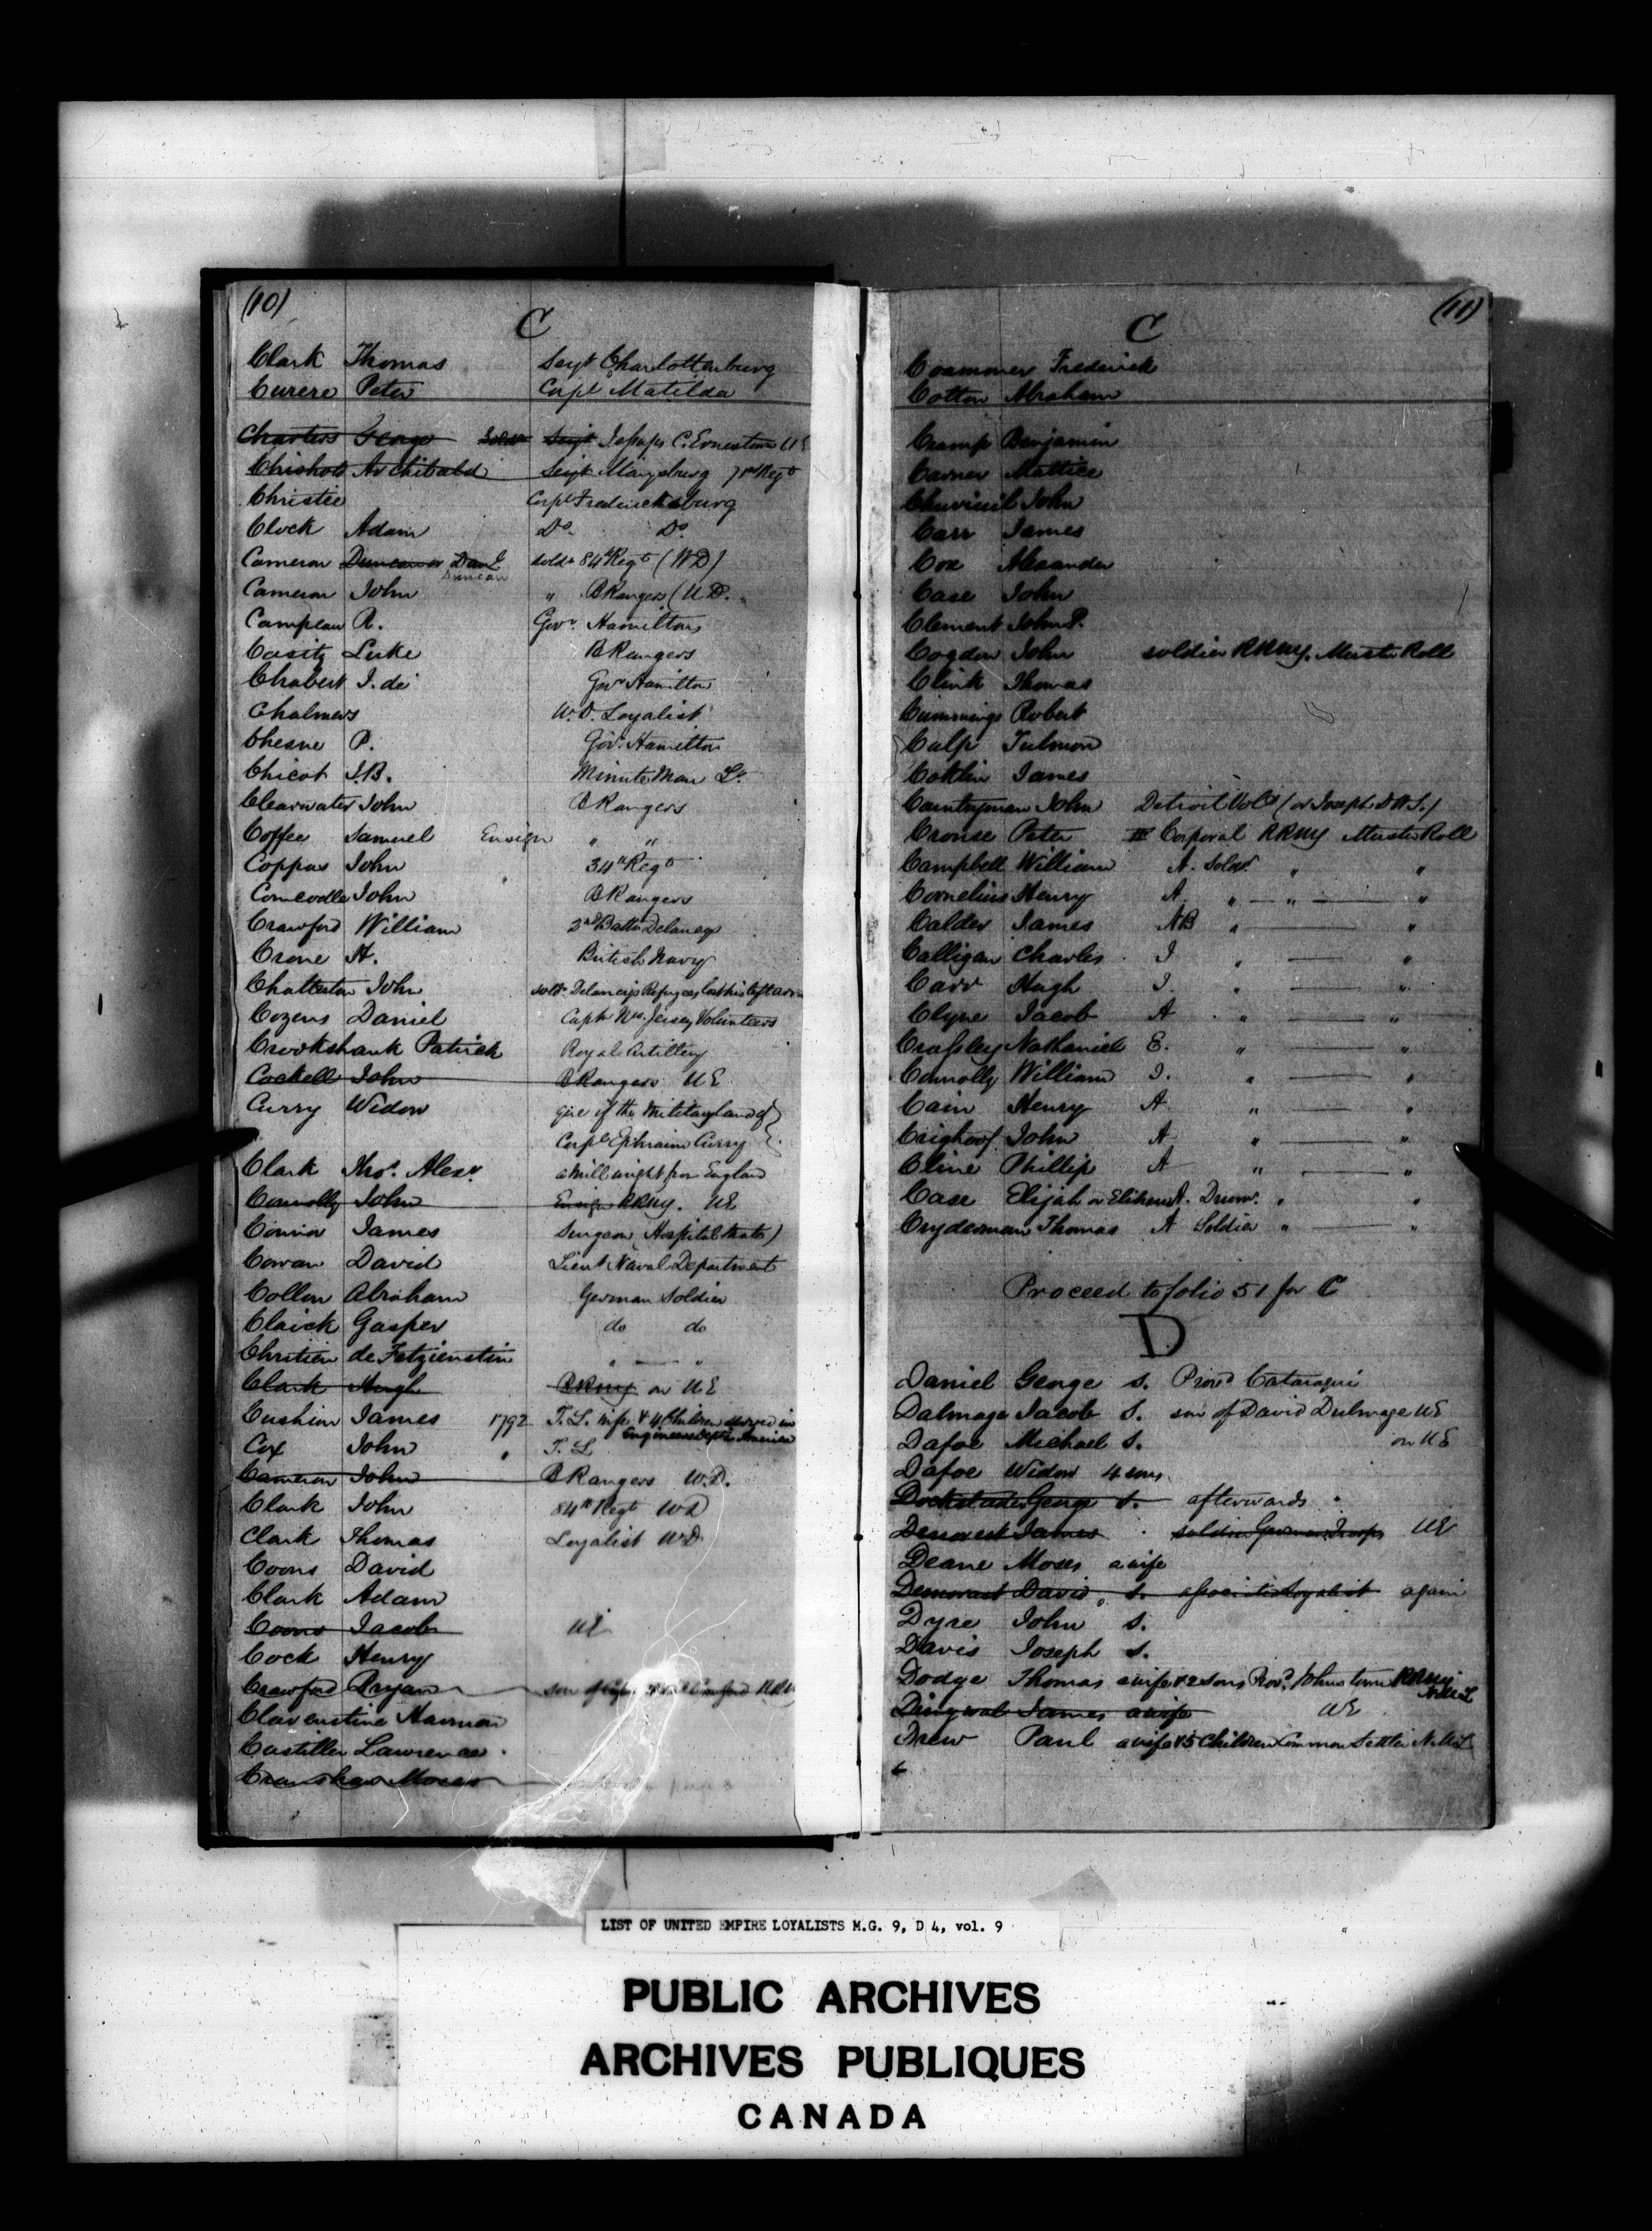 (10)
C
Clark Thomas Sergt Charlottenburg
Curere Peter Corpl Matilda
Charters George Soldr Sergt Jessups C. Ernestown UE
Chisholm Archibald Sergt Marysburg Regt
Christie Corpl Fredericksburg
Clock Adam Do. Do.
Cameron Duncan or Danl Duncan soldr 84th Regt (WD)
Cameron John " B Rangers (U.D.
Campeau R. Govr. Hamilton
Casity Luke B Rangers
Chabert J. de Govr Hamilton
Chalmers W.D. Loyalist
Chesne P. Govr. Hamilton
Chicot J.B. Minute Man Lt.
Clearwater John B Rangers
Coffee Samuel Ensign " "
Coppus John 34th Regt
John B Rangers
Crawford William 2nd Battn Delancy
Crone H. British Navy
Chatterton John soldr. Delanceys Refugees lost his left arm
Cozens Daniel Captn New Jersey Volunteers
Crookshank Patrick Royal Artillery
Cockell John B Rangers UE
Curry Widow give if the Military land of
Corpl Ephraim Curry
Clark Thos. Alexr. a Millwright from England
Connolly John Ensign RRNY. UE
Connor James Surgeon (Hospital
Cowan David Lieut Naval Department
Collon Abraham German Soldier
Claick Gasper do do
Chritien de Fetzienstin " — "
Clark Hugh RRNY on UE
Cushion James 1792 T.L. wife & 4 Children served in
Engineers Dept in America
Cox John " T.L
Cameron John B Rangers W.D.
Clark John 84th Regt WD
Clark Thomas Loyalist WD
Coons David
Clark Adam
Coons Jacob UE
Cock Henry
Crawford Bryan son of Crawford
Clavenstine Harman
Castiller Lawrence
Cranshaw Moses
(11)
C
Coammoner Frederick
Cotton Abraham
Cramp Benjamin
Carner Mattice
John
Carr James
Cox Alexander
Case John
Clement John P.
Cogdon John soldier RRNY. Muster Roll
Clink Thomas
Cummings Robert
Culp Tulmon
Coklin James
Countryman John Detroit Vols (or Joseph D.W.S.)
Crouse Peter Corporal RRNY Muster Roll
Campbell William A. Soldr. " "
Cornelius Henry A. " — " — "
Calder James NB " — "
Calligan Charles I " — "
Carr Hugh I. " — "
Clyne Jacob A " — "
Crossley Nathaniel E. " — "
Connolly William I. " — "
Cain Henry A " — "
Crighoof John A " — "
Cline Phillip A " — "
Case Elijah or Elihew A. Drumr. " "
Cryderman Thomas A Soldier " — "
Proceed to folio 51 for C
D
Daniel George S. Provd Cataraqui
Dalmage Jacob S. son of David Dulmage UE
Dafoe Michael S. on UE
Dafoe Widow 4 sons
Dockstader George S. afterwards "
Denault James soldier German Troops UE
Deane Moses a wife
Demorast David S. associated Loyalist again
Dyre John S.
Davis Joseph S.
Dodge Thomas a wife & 2 sons Provd. Johnstown RRNY
N.U.L
Dingwal James a wife UE
Drew Paul a wife & 5 Children Common Settler N.U.L
LIST OF UNITED EMPIRE LOYALISTS M.G. 9, D 4, vol. 9
PUBLIC ARCHIVES
ARCHIVES PUBLIQUES
CANADA